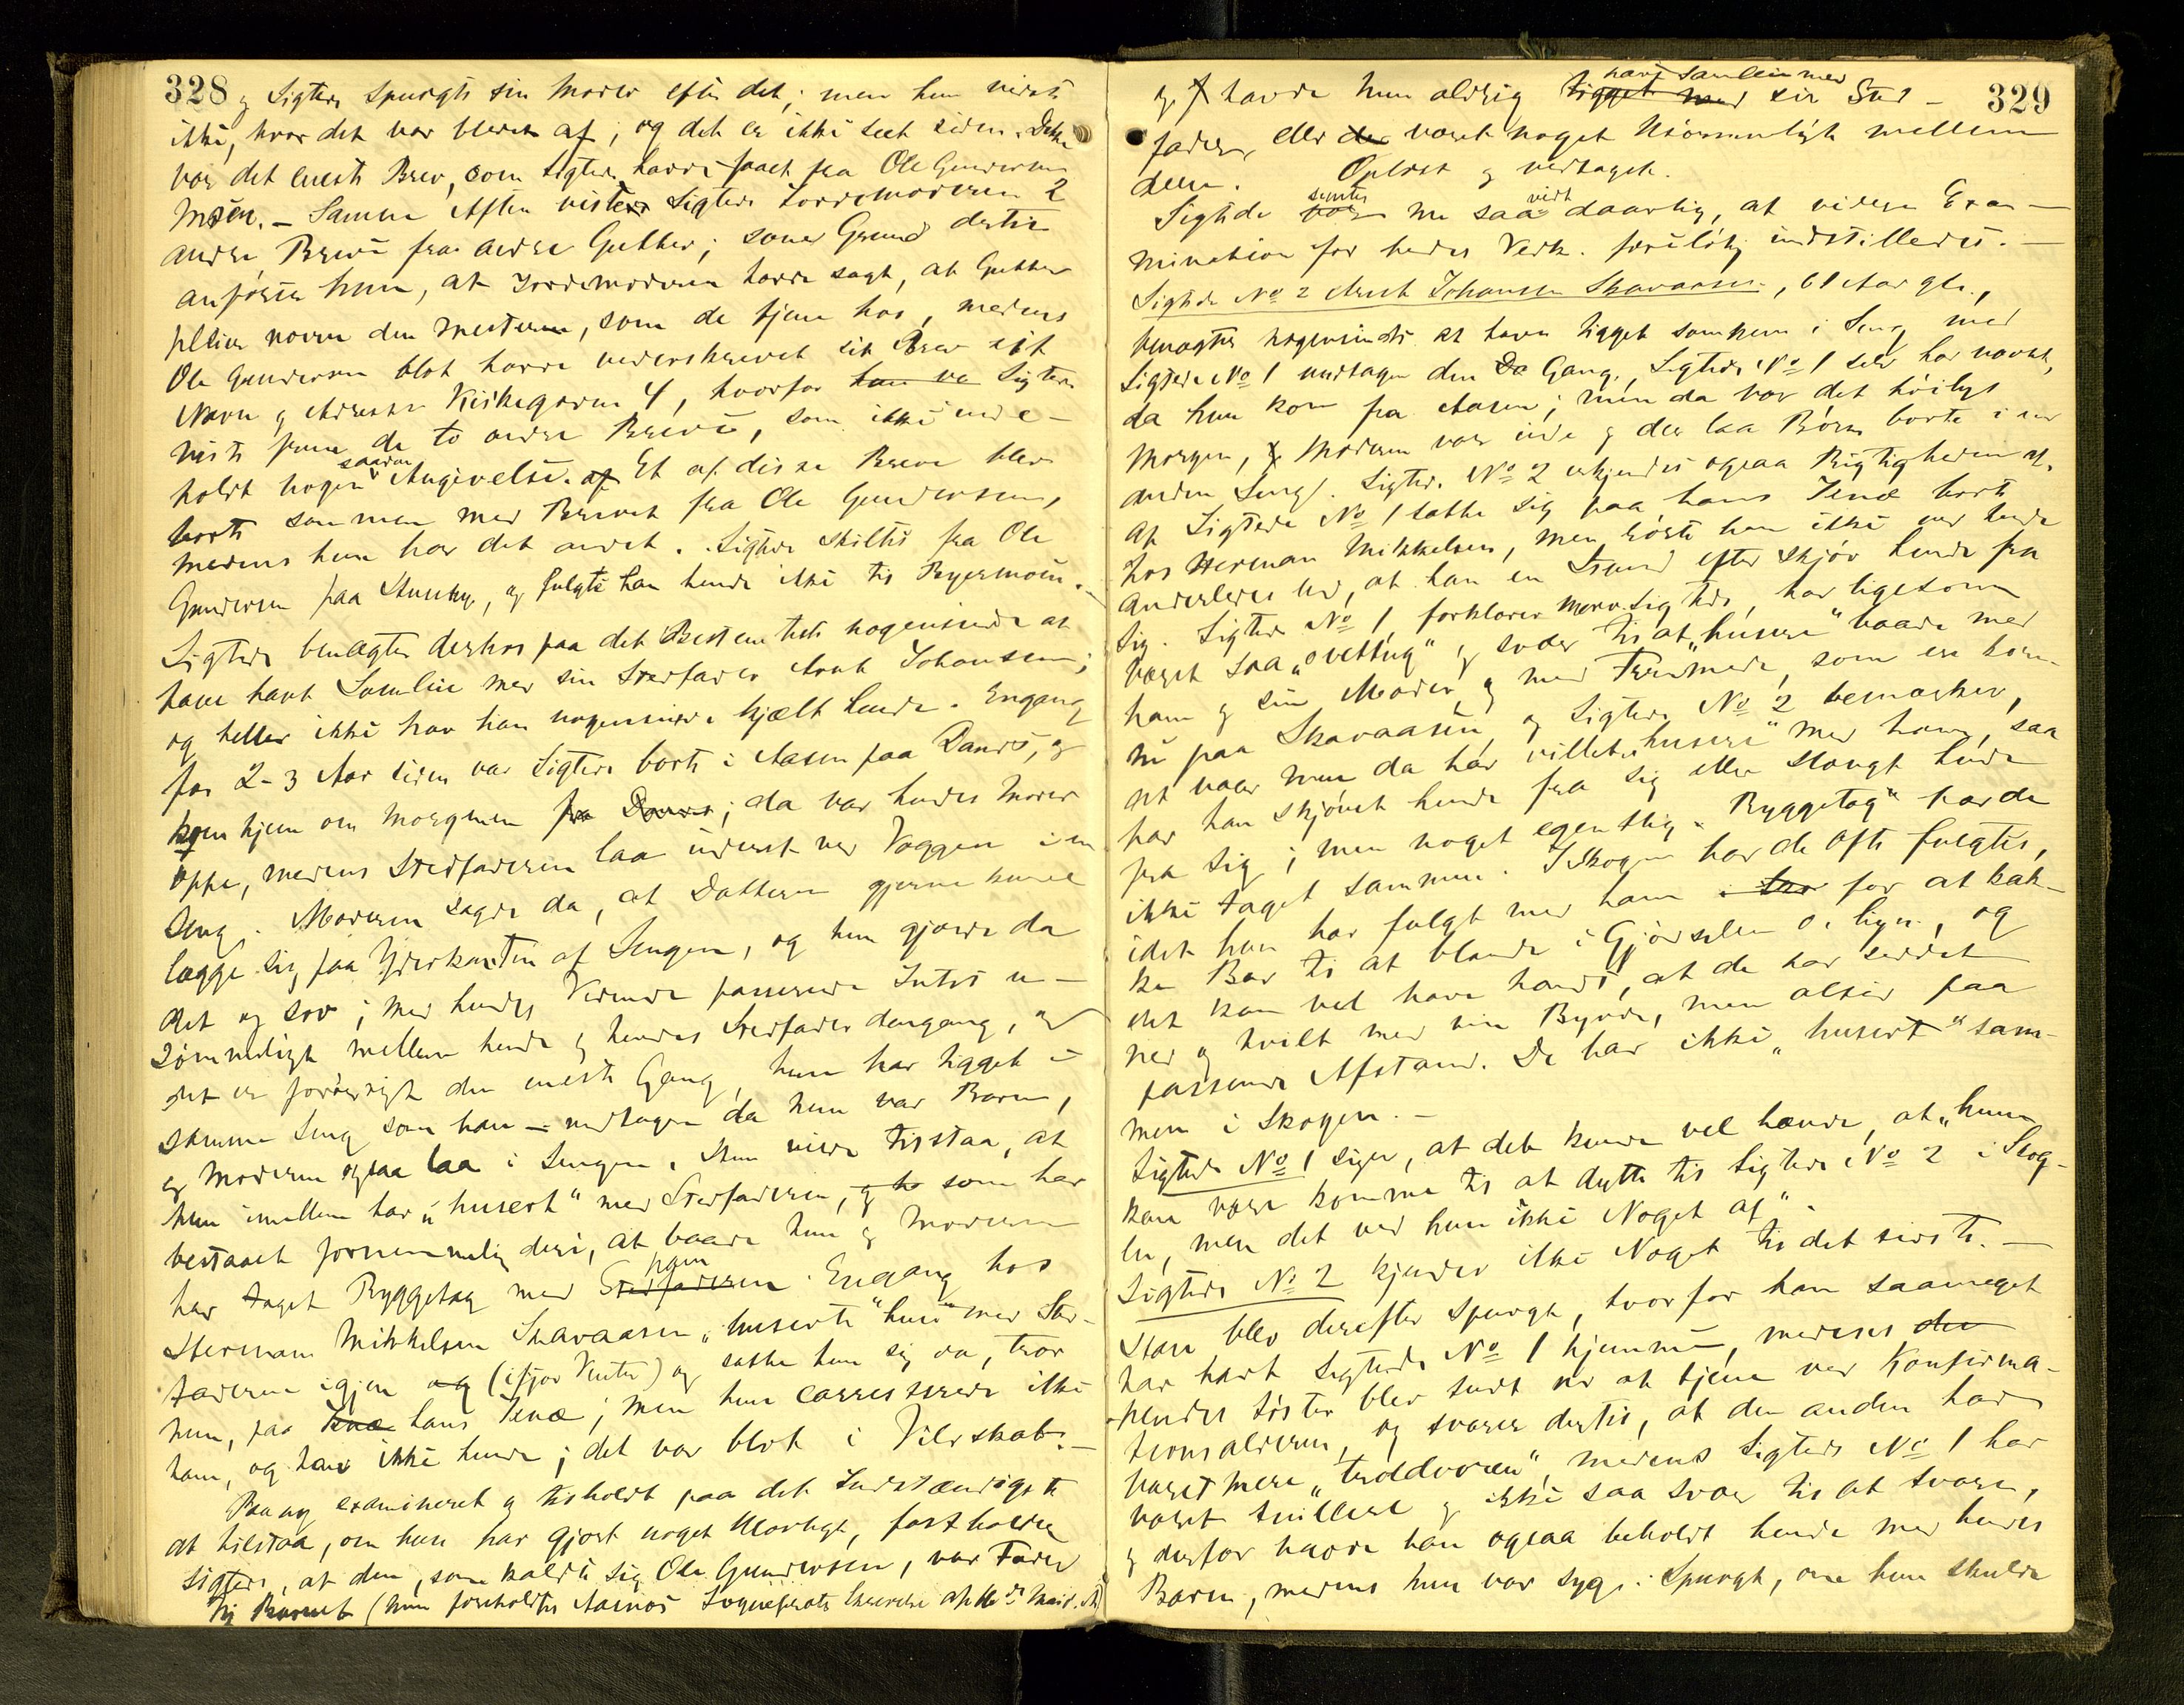 328 og Sigtede spurgte sin Moder efter det; men hun vidste
ikke, hvor det var bleven af, og det er ikke seet siden. Dette
var det eneste Brev, som Sigtede havde faaet fra Ole Gundersen
Moen. – Samme Aften viste Sigtede Jordemoderen 2
andre Breve fra andre Gutter; som Grund dertil
anfører hun, at Jordemoderen havde sagt, at Gutter
pleier nævne den Mesteren, som de tjene hos, medens
Ole Gundersen blot havde underskrevet sit Brev sit
Navn og Adresse Kirkegaden 4, hvorfor han va Sigtede
viste frem de to andre Breve, som ikke inde-
holdt nogen saadan Angivelse. af Et af disse Breve blev
borte sammen med Brevet fra Ole Gundersen,
medens hun har det andet. Sigtede skiltes fra Ole
Gundersen paa Auseby, og fulgte han hende ikke til Byermoen. –
Sigtede benægter derhos paa det Bestemteste nogensinde at
have havt Samleie med sin Stedfader Arnt Johansen;
og heller ikke har han nogensinde kjælt hende. Engang
for 2-3 Aar siden var Sigtede borte i Aasen paa Dands, og
kom hjem om Morgenen fra Dands; da var hendes Moder
oppe, medens Stedfaderen laa inderst ved Væggen i en
Seng. Moderen sagde da, at Datteren gjerne kunde
lægge sig paa Yderkanten af Sengen, og hun gjorde da
det og sov; med hendes Vidende passerede Intet u-
sømmeligt mellem hende og hendes Stedfader dengang, og
det er forøvrigt den eneste Gang, hun har ligget i
samme Seng som han – undtagen da hun var Barn,
og Moderen ogsaa laa i Sengen. Hun vilde tilstaa, at
hun imellem har „husert“ med Stedfaderen, og to som har
bestaaet fornemmelig deri, at baade hun og Moderen
har taget Ryggetag med Stedfaderen ham. Engang hos
Herman Mikkelsen Skavaasen „huserte“ hun med Sted-
faderen igjen og (ifjor Vinter) og satte hun sig da, tror
hun, paa Knæ hans Knæ; men hun caresserede ikke
ham, og han ikke hende; det var blot i Vildskab. –
Paany examineret og tilholdt paa det Indstændigste
at tilstaa, om hun har gjort noget Ulovligt, fastholder
Sigtede, at den, som kaldte sig Ole Gundersen, var Fader
til Barnet (hun foreholdtes Aamos Sogneprests Skrivelse af
329
og havde hun aldrig ligget med havt Samleie med sin Sted-
fader, eller de været noget Usømmeligt mellem
dem. Oplæst og vedtaget.
Sigtede var syntes nu saa vidt daarlig, at videre Exa-
mination for hendes Vedk. foreløbig indstilledes. –
Sigtede No 2 Arnt Johansen Skavaasen, 61 Aar gl.,
benægter nogensinde at have ligget sammen i Seng med
Sigtede No 1 undtagen den Da Gang, Sigtede No 1 selv har nævnt,
da hun kom fra Aasen; men da var det høilys
Morgen, og Moderen var inde og der laa Børn borte i en
anden Seng. Sigtede No 2 erkjendte ogsaa Rigtigheden af,
at Sigtede No 1 satte sig paa hans Knæ borte
hos Herman Mikkelsen, men rørte han ikke ved hende
anderledes end, at han en Stund efter skjøv hende fra
sig. Sigtede No 1 forklarer Sigtede, har ligesom
været saa „ovettug“ og svær til at „husere“ baade med
ham og sin Moder og med Fremmede, som er kom-
ne paa Skavaasen, og Sigtede No 2 bemærker,
at naar hun da har villet „husere“ med ham, saa
har han skjøvet hende fra sig eller slængt hende
fra sig; men noget egentlig „Ryggetag“ har de
ikke taget sammen. I Skogen har de ofte fulgtes,
idet hun har fulgt med ham i for at bak-
ke Bar til at blande i Gjødselen o. lign., og
det kan vel have hændt, at de har siddet
ned og hvilt med sin Byrde, men altid paa
passende Afstand. De har ikke „husert“ sam-
men i Skogen. –
Sigtede No 1 siger, at det kunde vel hænde, at „hun
kan være komme til at dytte til Sigtede No 2 i Skog-
en, men det ved hun ikke Noget af“.
Sigtede No 2 kjender ikke Noget til det sidste. –
Han blev derefter spurgt, hvorfor han saameget
har havt Sigtede No 1 hjemme, medens den
hendes Søster blev sendt ud at tjene ved Konfirma-
tionsalderen, og svarer dertil, at den anden har
været mere „troldvoren“, medens Sigtede No 1 har
været snillere og ikke saa svær til at svare,
og derfor havde han ogsaa beholdt hende med hendes
Barn, medens hun var syg. Spurgt, om hun skulde